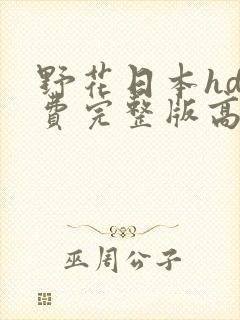 野花日本hd
費完整版高
巫周公子